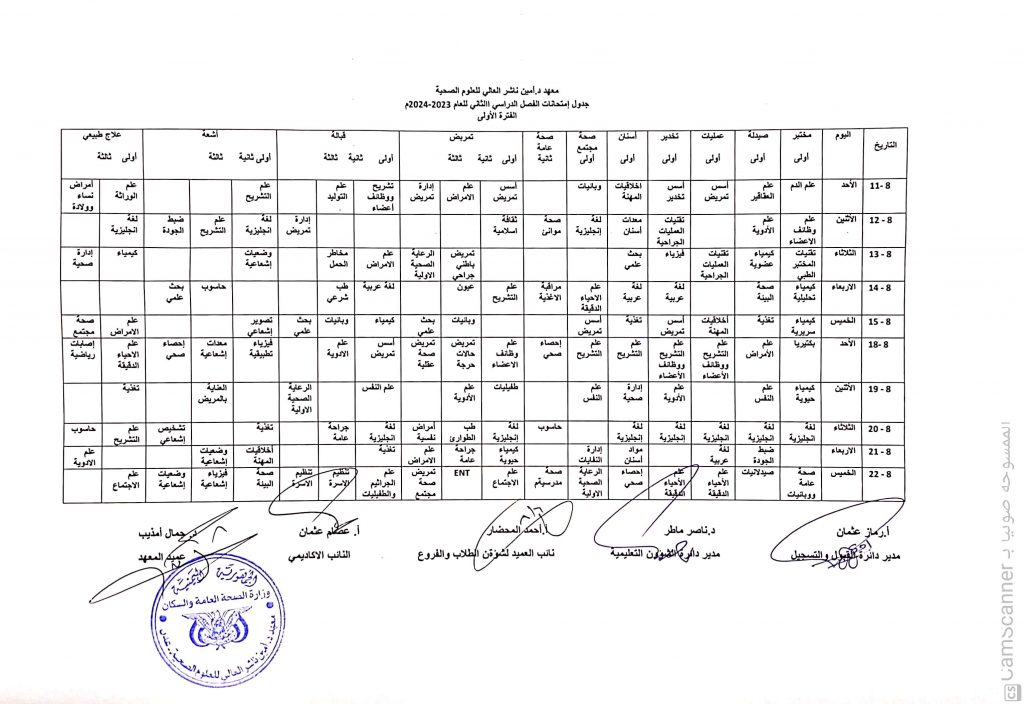 معهد د.أمين ناشر العالي للعلوم الصحية
جدول إمتحانات الفصل الدراسي االثاني للعام 2023-2024م
الفترة الأولى
التاريخ اليوم مختبر أولى صيدلة أولى عمليات أولى تخدير أولى أسنان أولى صحة مجتمع أولى صحة عامة ثانية تمريض أولى ثانية ثالثة قبالة أولى ثانية ثالثة أشعة أولى ثانية ثالثة علاج طبيعي أولى ثالثة
11- 8 الأحد علم الدم علم العقاقير أسس تمريض أسس تخدير اخلاقيات المهنة وبانيات أسس تمريض علم الامراض إدارة تمريض تشريح ووظائف أعضاء علم التوليد علم التشريح علم الوراثة أمراض نساء وولادة
12 - 8 الأثنين علم وظائف الاعضاء علم الأدوية تقنيات العمليات الجراحية معدات أسنان لغة إنجليزية صحة موانئ ثقافة اسلامية إدارة تمريض لغة انجليزية علم التشريح ضبط الجودة لغة انجليزية
13 - 8 الثلاثاء تقنيات المختبر الطبي كيمياء عضوية تقنيات العمليات الجراحية فيزياء بحث علمي تمريض باطني جراحي الرعاية الصحية الاولية علم الامراض مخاطر الحمل وضعيات إشعاعية كيمياء إدارة صحية
14 - 8 الاربعاء كيمياء تحليلية صحة البيئة لغة عربية لغة عربية علم الاحياء الدقيقة مراقبة الاغذية علم التشريح عيون لغة عربية طب شرعي حاسوب بحث علمي
15 - 8 الخميس كيمياء سريرية تغذية أخلاقيات المهنة أسس تمريض تغذية أسس تمريض وبانيات بحث علمي كيمياء وبانيات بحث علمي تصوير إشعاعي علم الامراض صحة مجتمع
18- 8 الأحد بكتيريا علم الأمراض علم التشريح ووظائف الأعضاء علم التشريح ووظائف الأعضاء علم التشريح علم التشريح إحصاء صحي علم وظائف الاعضاء تمريض حالات حرجة تمريض صحة عقلية أسس تمريض علم الادوية فيزياء تطبيقية معدات إشعاعية إحصاء صحي علم الاحياء الدقيقة إصابات رياضية
19 - 8 الأثنين كيمياء حيوية علم النفس علم الأدوية إدارة صحية علم النفس طفيليات علم الأدوية علم النفس الرعاية الصحية الاولية العناية بالمريض تغذية
20 - 8 الثلاثاء لغة إنجليزية لغة إنجليزية لغة إنجليزية لغة إنجليزية لغة إنجليزية لغة إنجليزية حاسوب لغة إنجليزية طب الطوارئ أمراض نفسية لغة إنجليزية جراحة عامة تغذية تشخيص إشعاعي علم التشريح حاسوب
21 - 8 الاربعاء ضبط الجودة لغة عربية مواد أسنان إدارة النفايات كيمياء حيوية جراحة عامة علم الامراض تغذية أخلاقيات المهنة وضعيات إشعاعية علم الادوية
22 - 8 الخميس صحة عامة ووبانيات صيدلانيات علم الأحياء الدقيقة علم الأحياء الدقيقة إحصاء صحي الرعاية الصحية الاولية صحة مدرسية علم الاجتماع ENT تمريض صحة مجتمع علم الجراثيم والطفيليات تنظيم الاسرة تنظيم الاسرة صحة البيئة فيزياء إشعاعية وضعيات إشعاعية علم الاجتماع
أ.رماز عثمان د.ناصر ماطر أ.أحمد المحضار أ. عصام عثمان د. جمال أمذيب
مدير دائرة القبول والتسجيل مدير دائرة الشؤون التعليمية نائب العميد لشؤون الطلاب والفروع النائب الاكاديمي عميد المعهد
الجمهورية اليمنية
وزارة الصحة العامة والسكان
معهد د. امين ناشر العالي للعلوم الصحية عدن
الممسوحه ضوئيا بـ CamScanner
CS